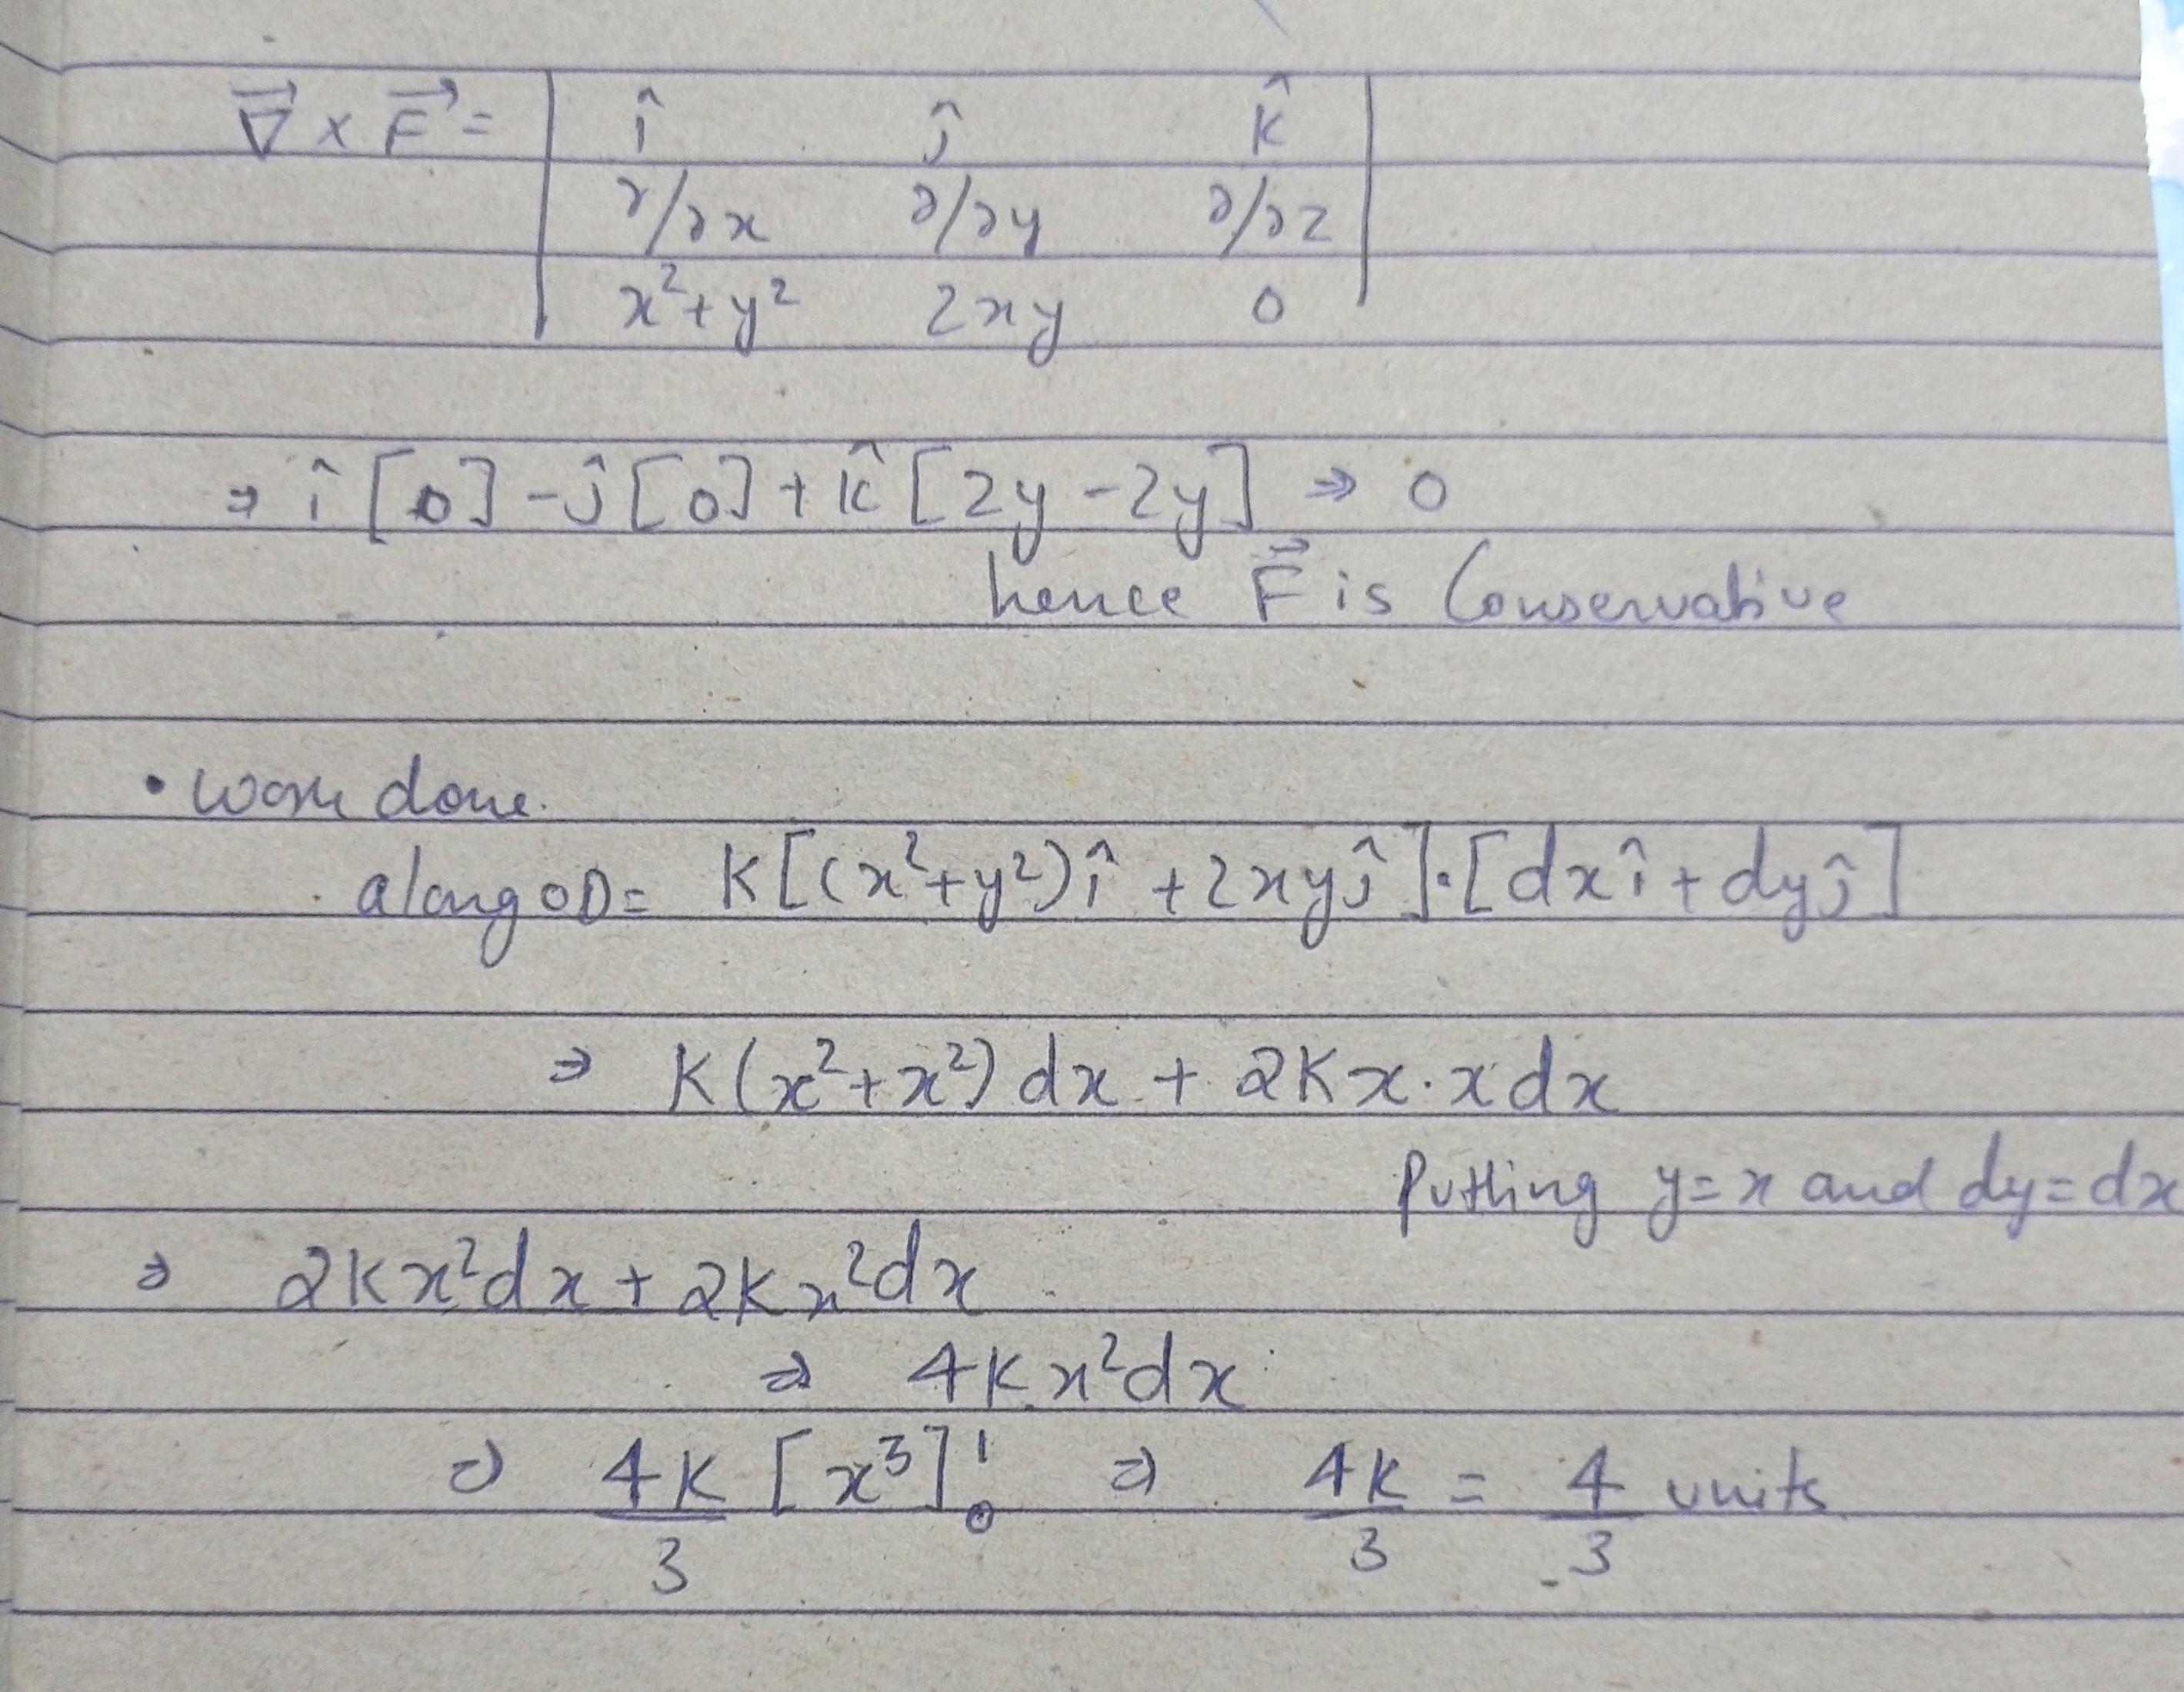 ∇⃗ × F⃗ = | î ĵ k̂ |
∂/∂x ∂/∂y ∂/∂z
x²+y² 2xy 0
⇒ î [0] - ĵ [0] + k̂ [2y - 2y] ⇒ 0
hence F⃗ is Conservative
• work done.
along OD = K[(x²+y²)î + 2xyĵ]·[dxî + dyĵ]
⇒ K(x²+x²)dx + 2Kx·xdx
Putting y=x and dy=dx
⇒ 2Kx²dx + 2Kx²dx
⇒ 4Kx²dx
⇒ 4K/3 [x³]₀¹ ⇒ 4K/3 = 4/3 units